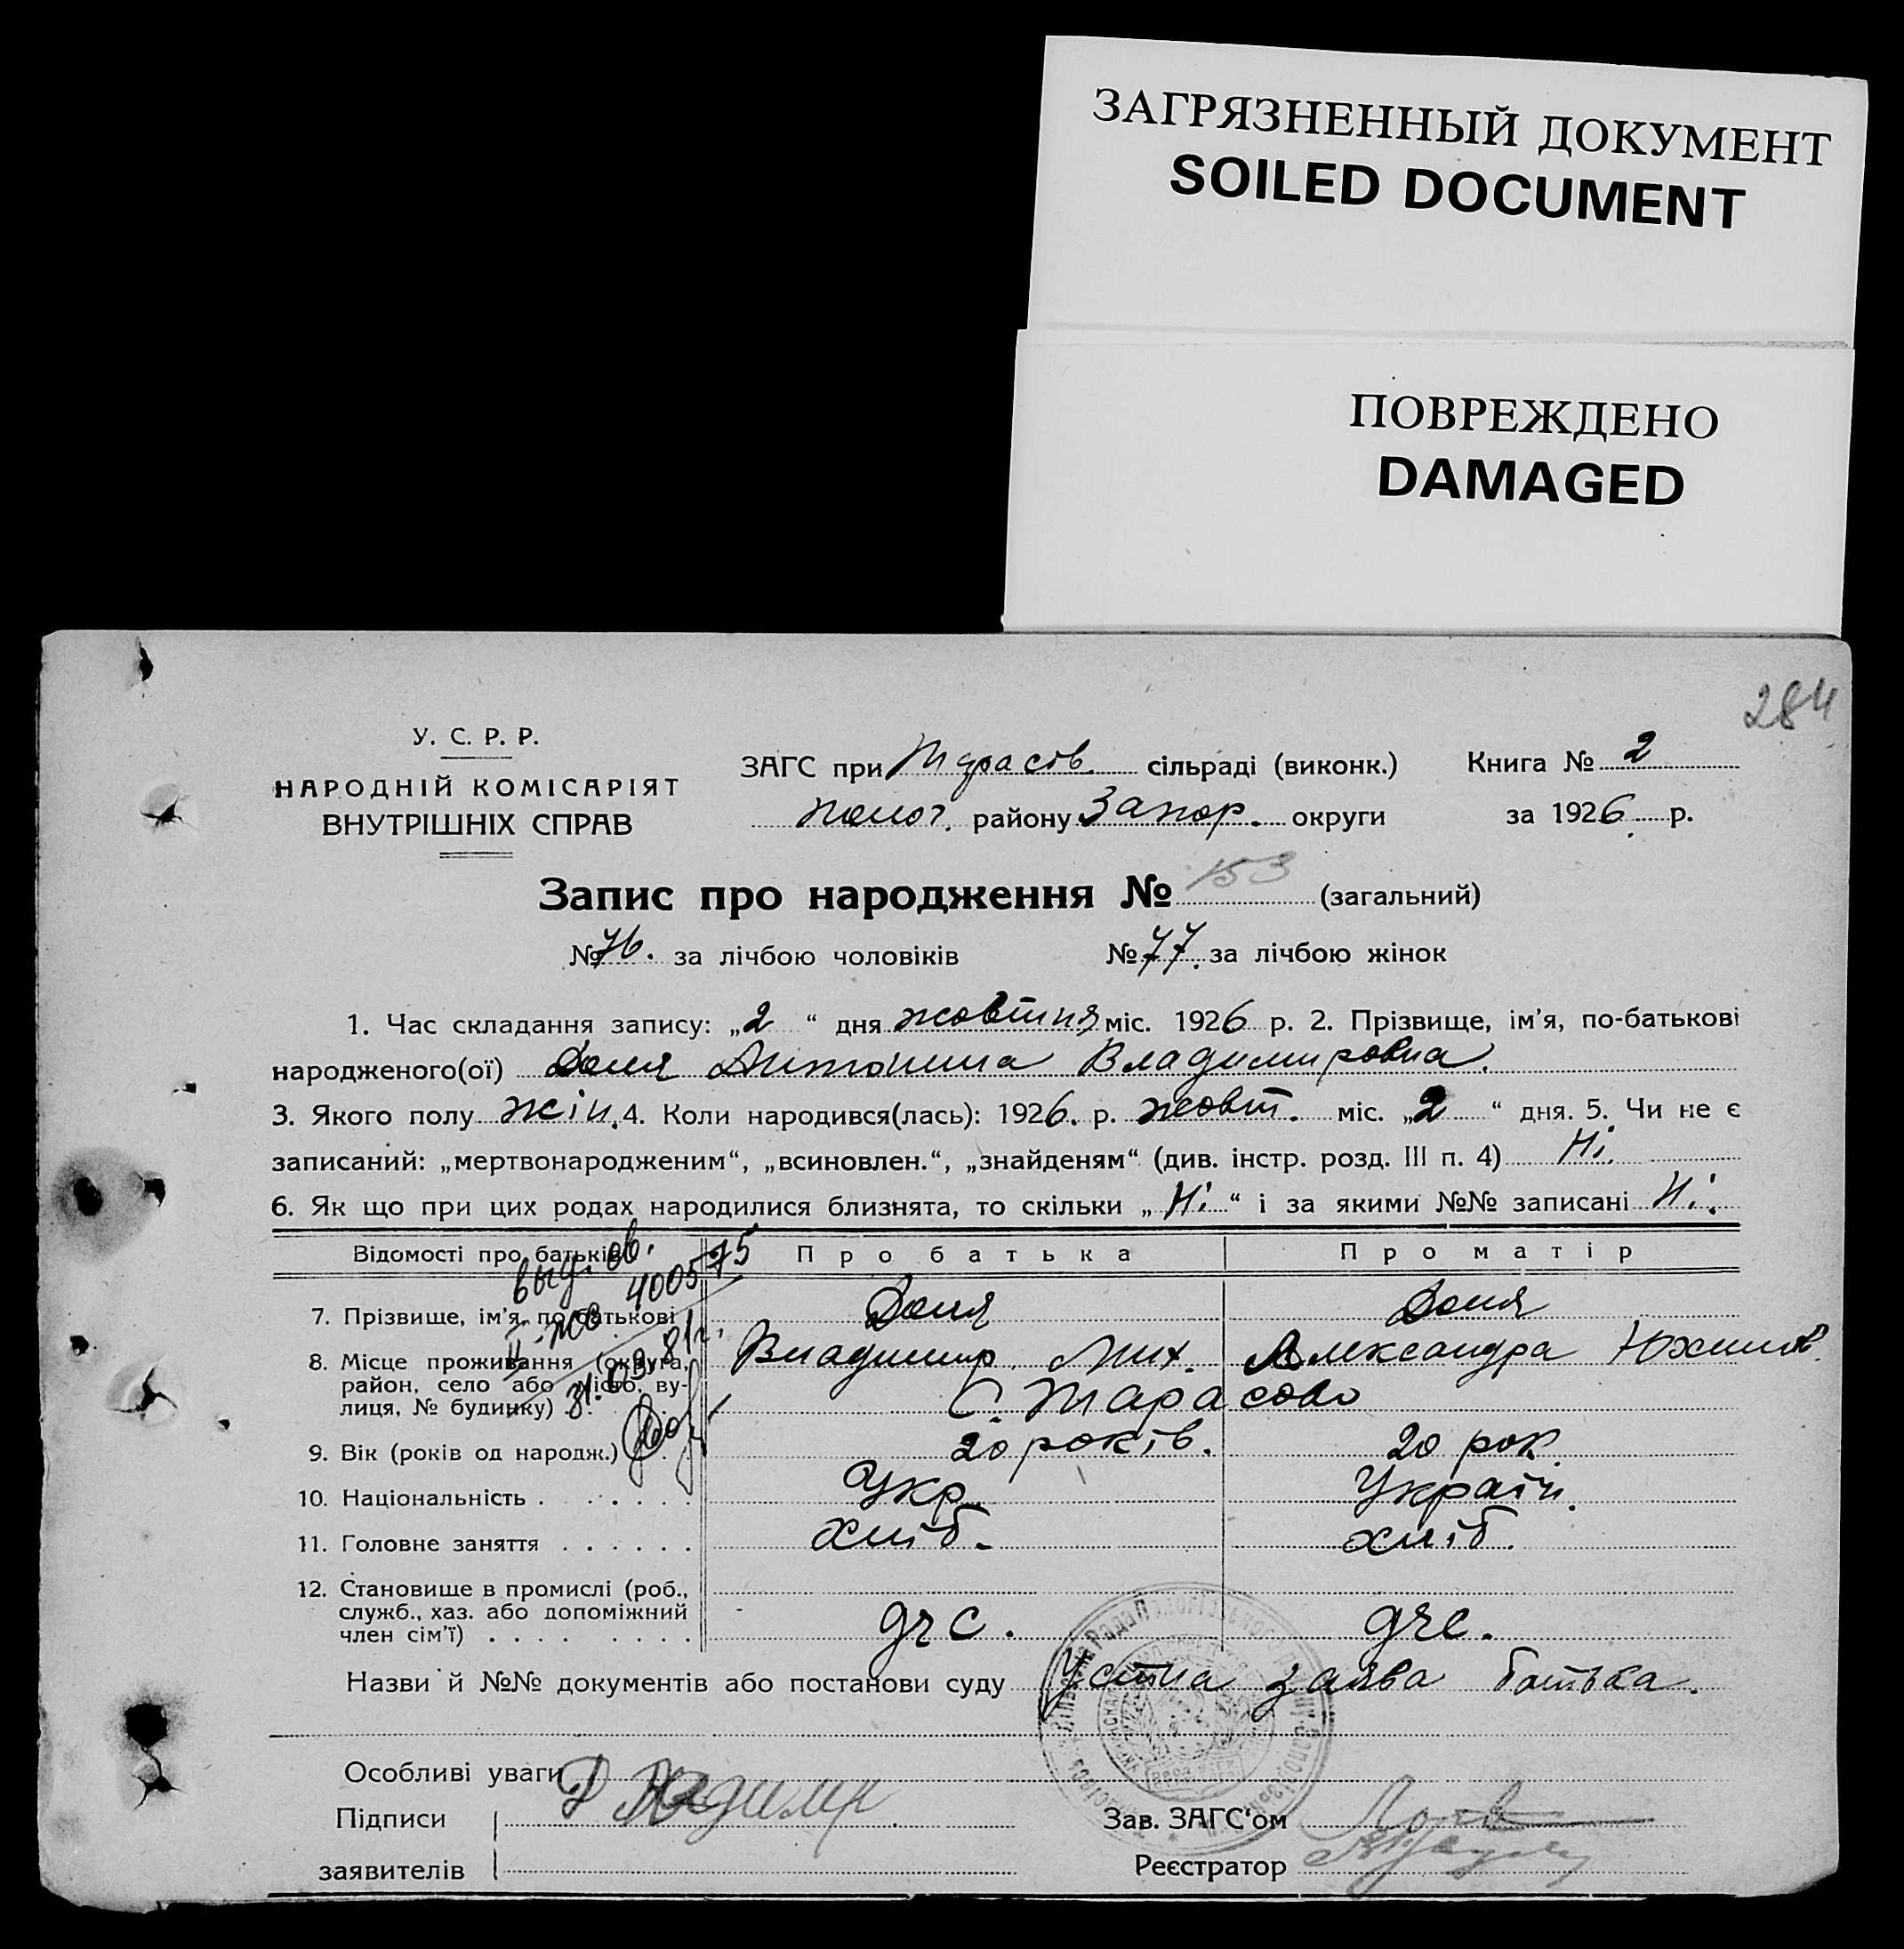 ЗАГРЯЗНЕННЫЙ ДОКУМЕНТ
SOILED DOCUMENT
ПОВРЕЖДЕНО
DAMAGED
284
У. С. Р. Р.
НАРОДНІЙ КОМІСАРІЯТ
ВНУТРІШНІХ СПРАВ
ЗАГС при Тарасів. сільраді (виконк.) Книга № 2
Полог. району Запор. округи за 1926 р.
Запис про народження № 153 (загальний)
№ 76. за лічбою чоловіків № 77. за лічбою жінок
1. Час складання запису: „2“ дня жовтня міс. 1926 р. 2. Прізвище, ім’я, по-батькові
народженого(ої) Доля Антонина Владимировна.
3. Якого полу жін. 4. Коли народився(лась): 1926. р. жовт. міс. „2“ дня. 5. Чи не є
записаний: „мертвонародженим“, „всиновлен.“, „знайденям“ (див. інстр. розд. III п. 4) Ні.
6. Як що при цих родах народилися близнята, то скільки „Ні“ і за якими №№ записані Ні.
Відомості про батьків Про батька Про матір
выд. св.
II-ЖС 400575
31.03.81г.
7. Прізвище, ім’я, по-батькові Доля Доля
Владимир Мих. Александра Юхимов.
8. Місце проживання (округа,
район, село або місто, ву-
лиця, № будинку) С. Тарасово
9. Вік (років од народж.) 20 років. 20 рок.
10. Національність Укр. Україн.
11. Головне заняття хліб. хліб.
12. Становище в промислі (роб.,
служб., хаз. або допоміжний
член сім’ї) дчс. дчс.
Назви й №№ документів або постанови суду Устна заява батька.
Особливі уваги
Підписи Д Владимир Зав. ЗАГС‘ом
заявителів Реєстратор